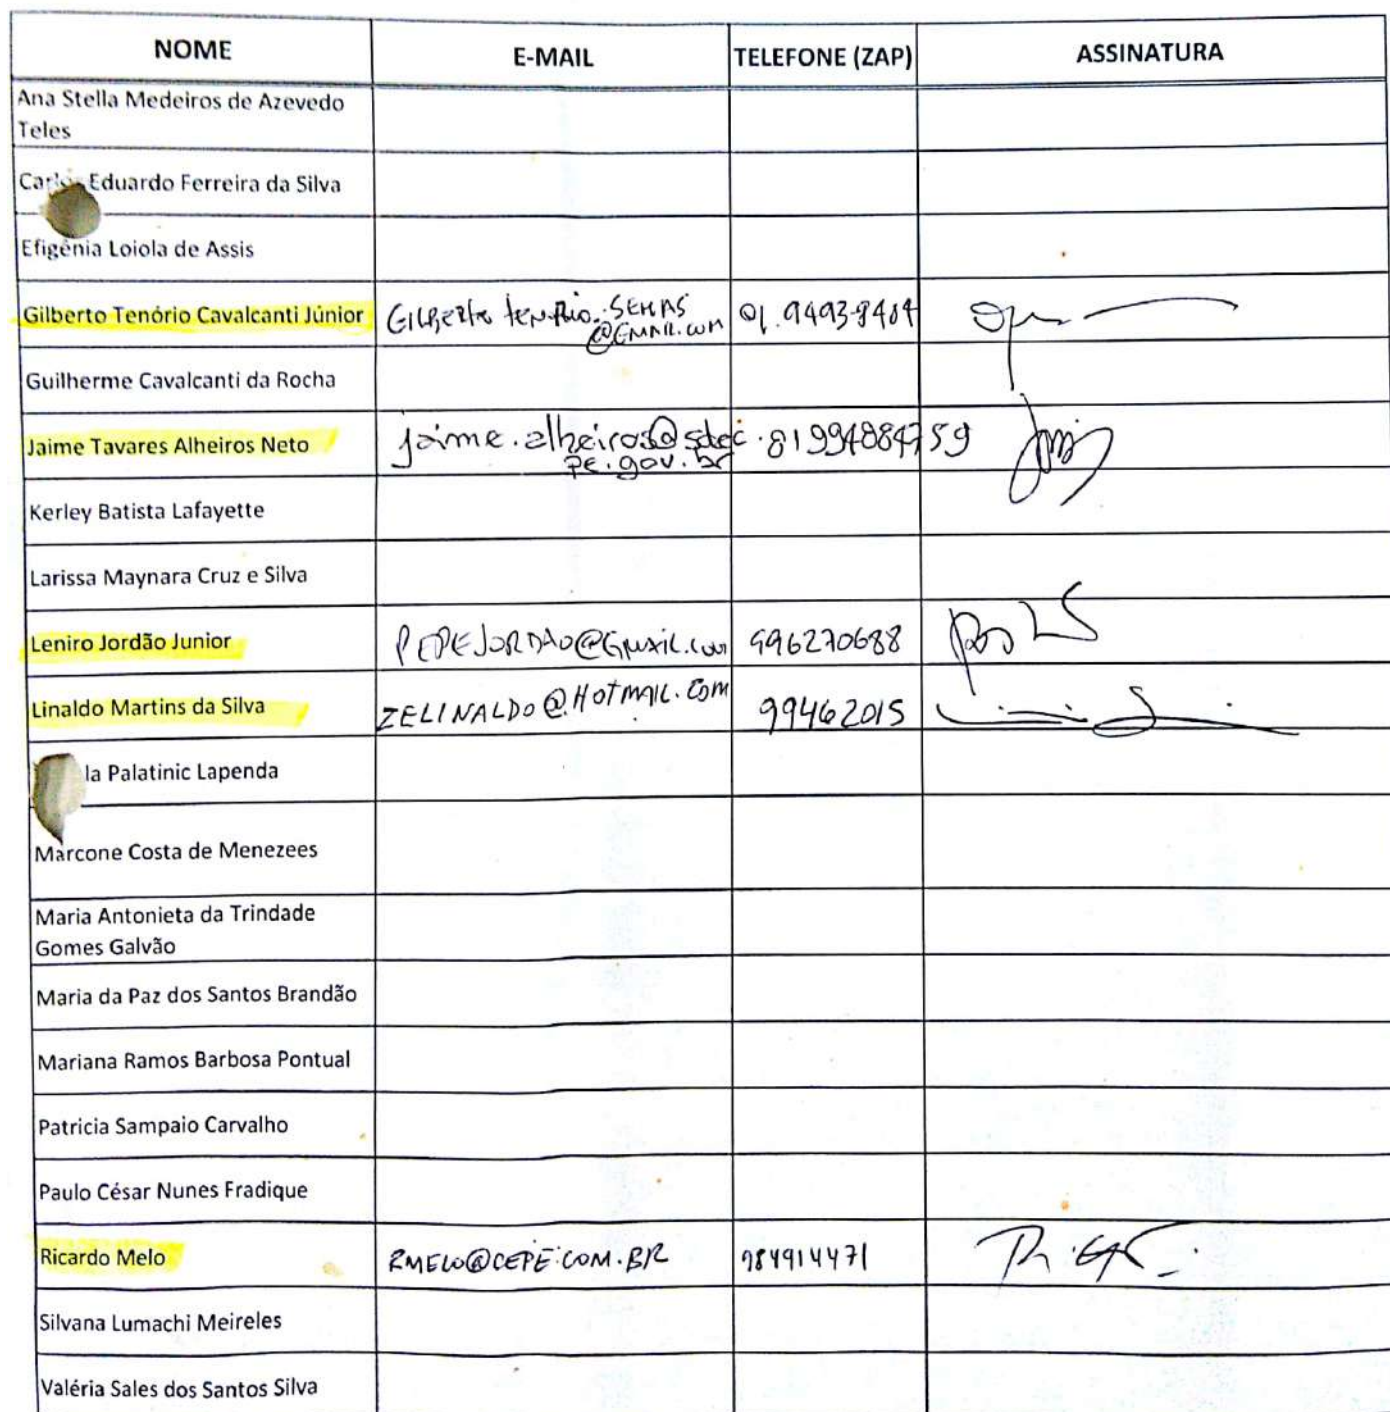 NOME E-MAIL TELEFONE (ZAP) ASSINATURA
Ana Stella Medeiros de Azevedo
Teles
Eduardo Ferreira da Silva
Efigênia Loiola de Assis
Gilberto Tenório Cavalcanti Júnior
@GMAIL.COM
Guilherme Cavalcanti da Rocha
Jaime Tavares Alheiros Neto jaime.alheiros@sdec.
pe.gov.br
Kerley Batista Lafayette
Larissa Maynara Cruz e Silva
Leniro Jordão Junior PEPEJORDAO@GMAIL.COM 996270688
Linaldo Martins da Silva ZELINALDO@HOTMAIL.COM 99462015
Palatinic Lapenda
Marcone Costa de Menezees
Maria Antonieta da Trindade
Gomes Galvão
Maria da Paz dos Santos Brandão
Mariana Ramos Barbosa Pontual
Patricia Sampaio Carvalho
Paulo César Nunes Fradique
Ricardo Melo RMELO@CEPE.COM.BR 984914471
Silvana Lumachi Meireles
Valéria Sales dos Santos Silva